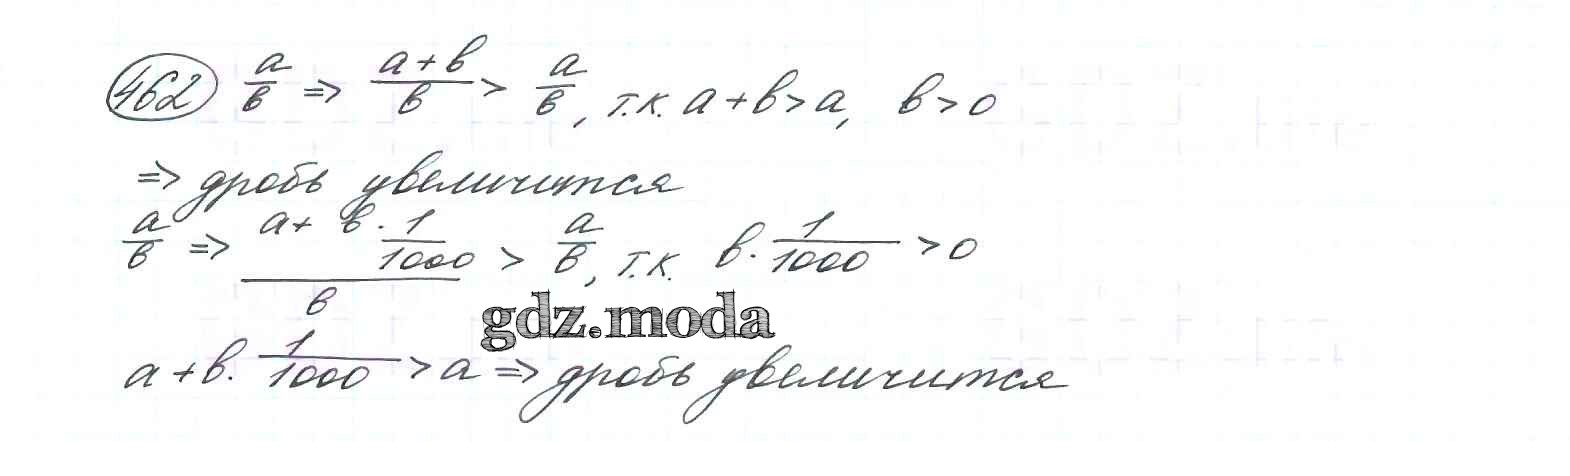 462 a/в => (a+в)/в > a/в, т.к. a+в>a, в>0
=> дробь увеличится
a/в => (a+ в·1/1000)/в > a/в, т.к. в·1/1000 >0
gdz.moda
a+в·1/1000 >a => дробь увеличится